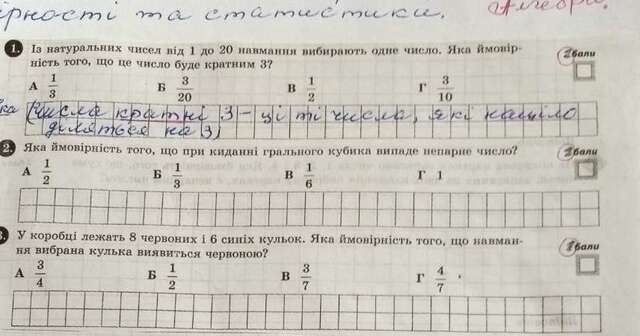 рності та статистики. Алгебра.
1. Із натуральних чисел від 1 до 20 навмання вибирають одне число. Яка ймовір-
ність того, що це число буде кратним 3?
2 бали
А 1/3 Б 3/20 В 1/2 Г 3/10
(числа кратні 3 - ці ті числа, які націло
діляться на 3)
2. Яка ймовірність того, що при киданні грального кубика випаде непарне число?
2 бали
А 1/2 Б 1/3 В 1/6 Г 1
3. У коробці лежать 8 червоних і 6 синіх кульок. Яка ймовірність того, що навман-
ня вибрана кулька виявиться червоною?
бали
А 3/4 Б 1/2 В 3/7 Г 4/7